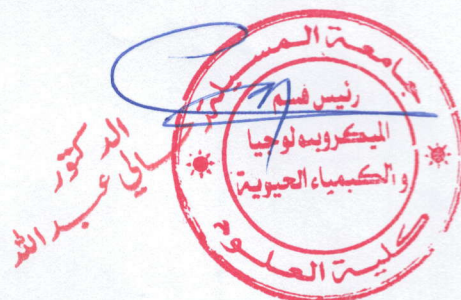 جامعة
رئيس قسم
الميكروبيولوجيا
والكيمياء الحيوية
كلية العلوم
الدكتور
سالي عبد الله